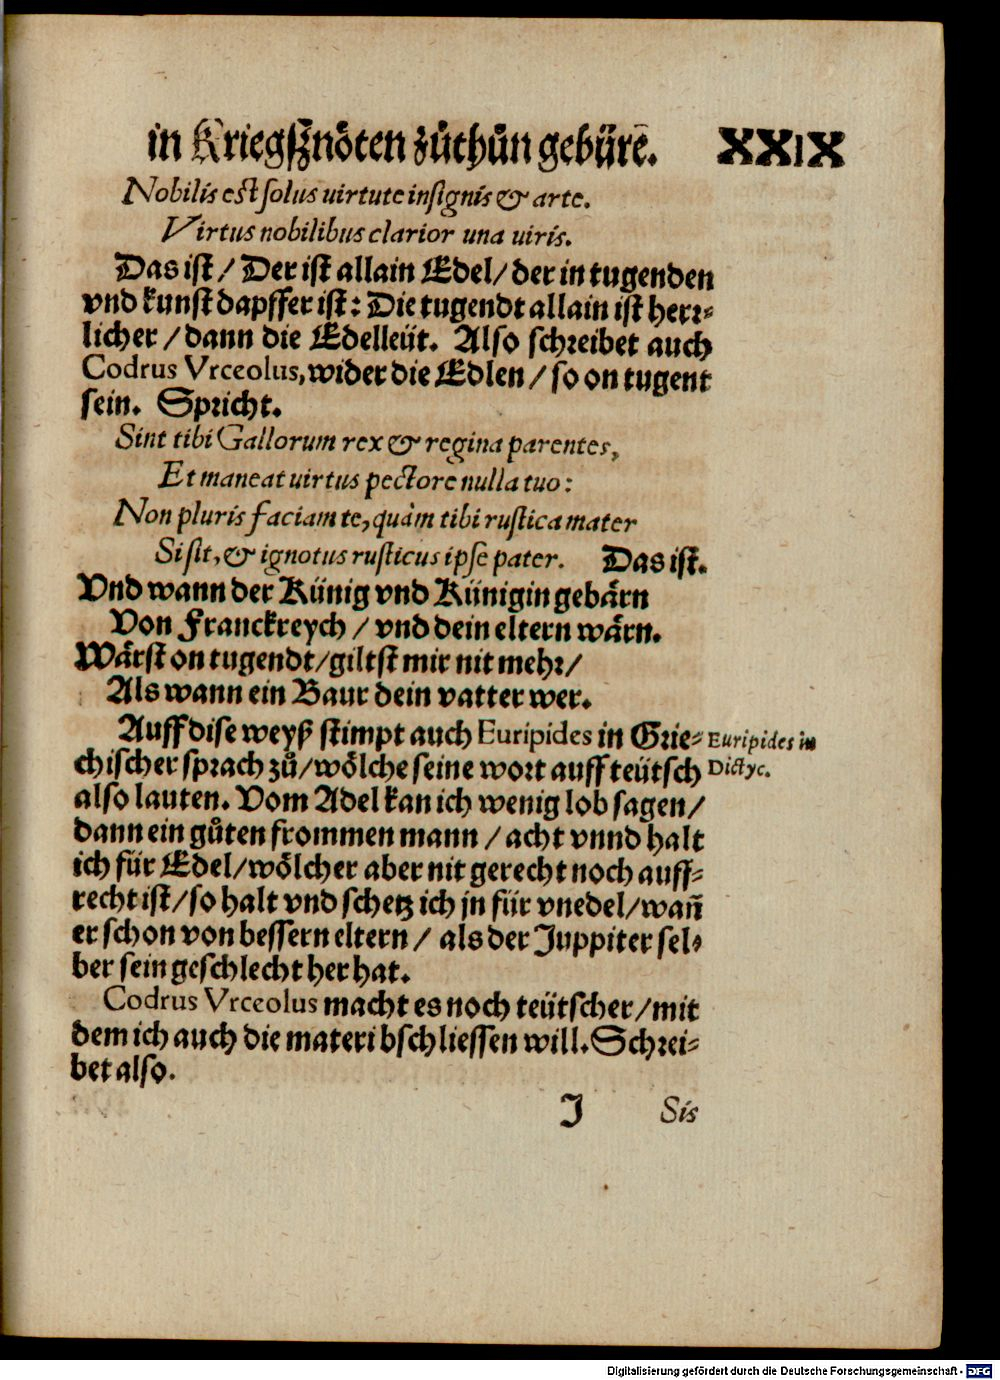 in Kriegßznöten zůthůn gebürē. XXIX
Nobilis est solus uirtute insignis & arte.
Virtus nobilibus clarior una uiris.
Das ist / Der ist allain Edel / der in tugenden
vnd kunst dapffer ist: Die tugendt allain ist herr⸗
licher / dann die Edelleüt. Also schreibet auch
Codrus Vrceolus, wider die Edlen / so on tugent
sein. Spricht.
Sint tibi Gallorum rex & regina parentes,
Et maneat uirtus pectore nulla tuo:
Non pluris faciam te, quàm tibi rustica mater
Si sit, & ignotus rusticus ipse pater. Das ist.
Vnd wann der Künig vnd Künigin gebårn
Von Franckreych / vnd dein eltern wårn.
Wårst on tugendt / giltst mir nit mehr /
Als wann ein Baur dein vatter wer.
Auff dise weyß stimpt auch Euripides in Grie⸗
chischer sprach zů / wölche seine wort auff teütsch
also lauten. Vom Adel kan ich wenig lob sagen /
dann ein gůten frommen mann / acht vnnd halt
ich für Edel / wölcher aber nit gerecht noch auff⸗
recht ist / so halt vnd schetz ich jn für vnedel / wañ
er schon von bessern eltern / als der Juppiter sel⸗
ber sein geschlecht her hat.
Euripides in
Dictyc.
Codrus Vrceolus macht es noch teütscher / mit
dem ich auch die materi bschliessen will. Schrei⸗
bet also.
J Sis
Digitalisierung gefördert durch die Deutsche Forschungsgemeinschaft - DFG